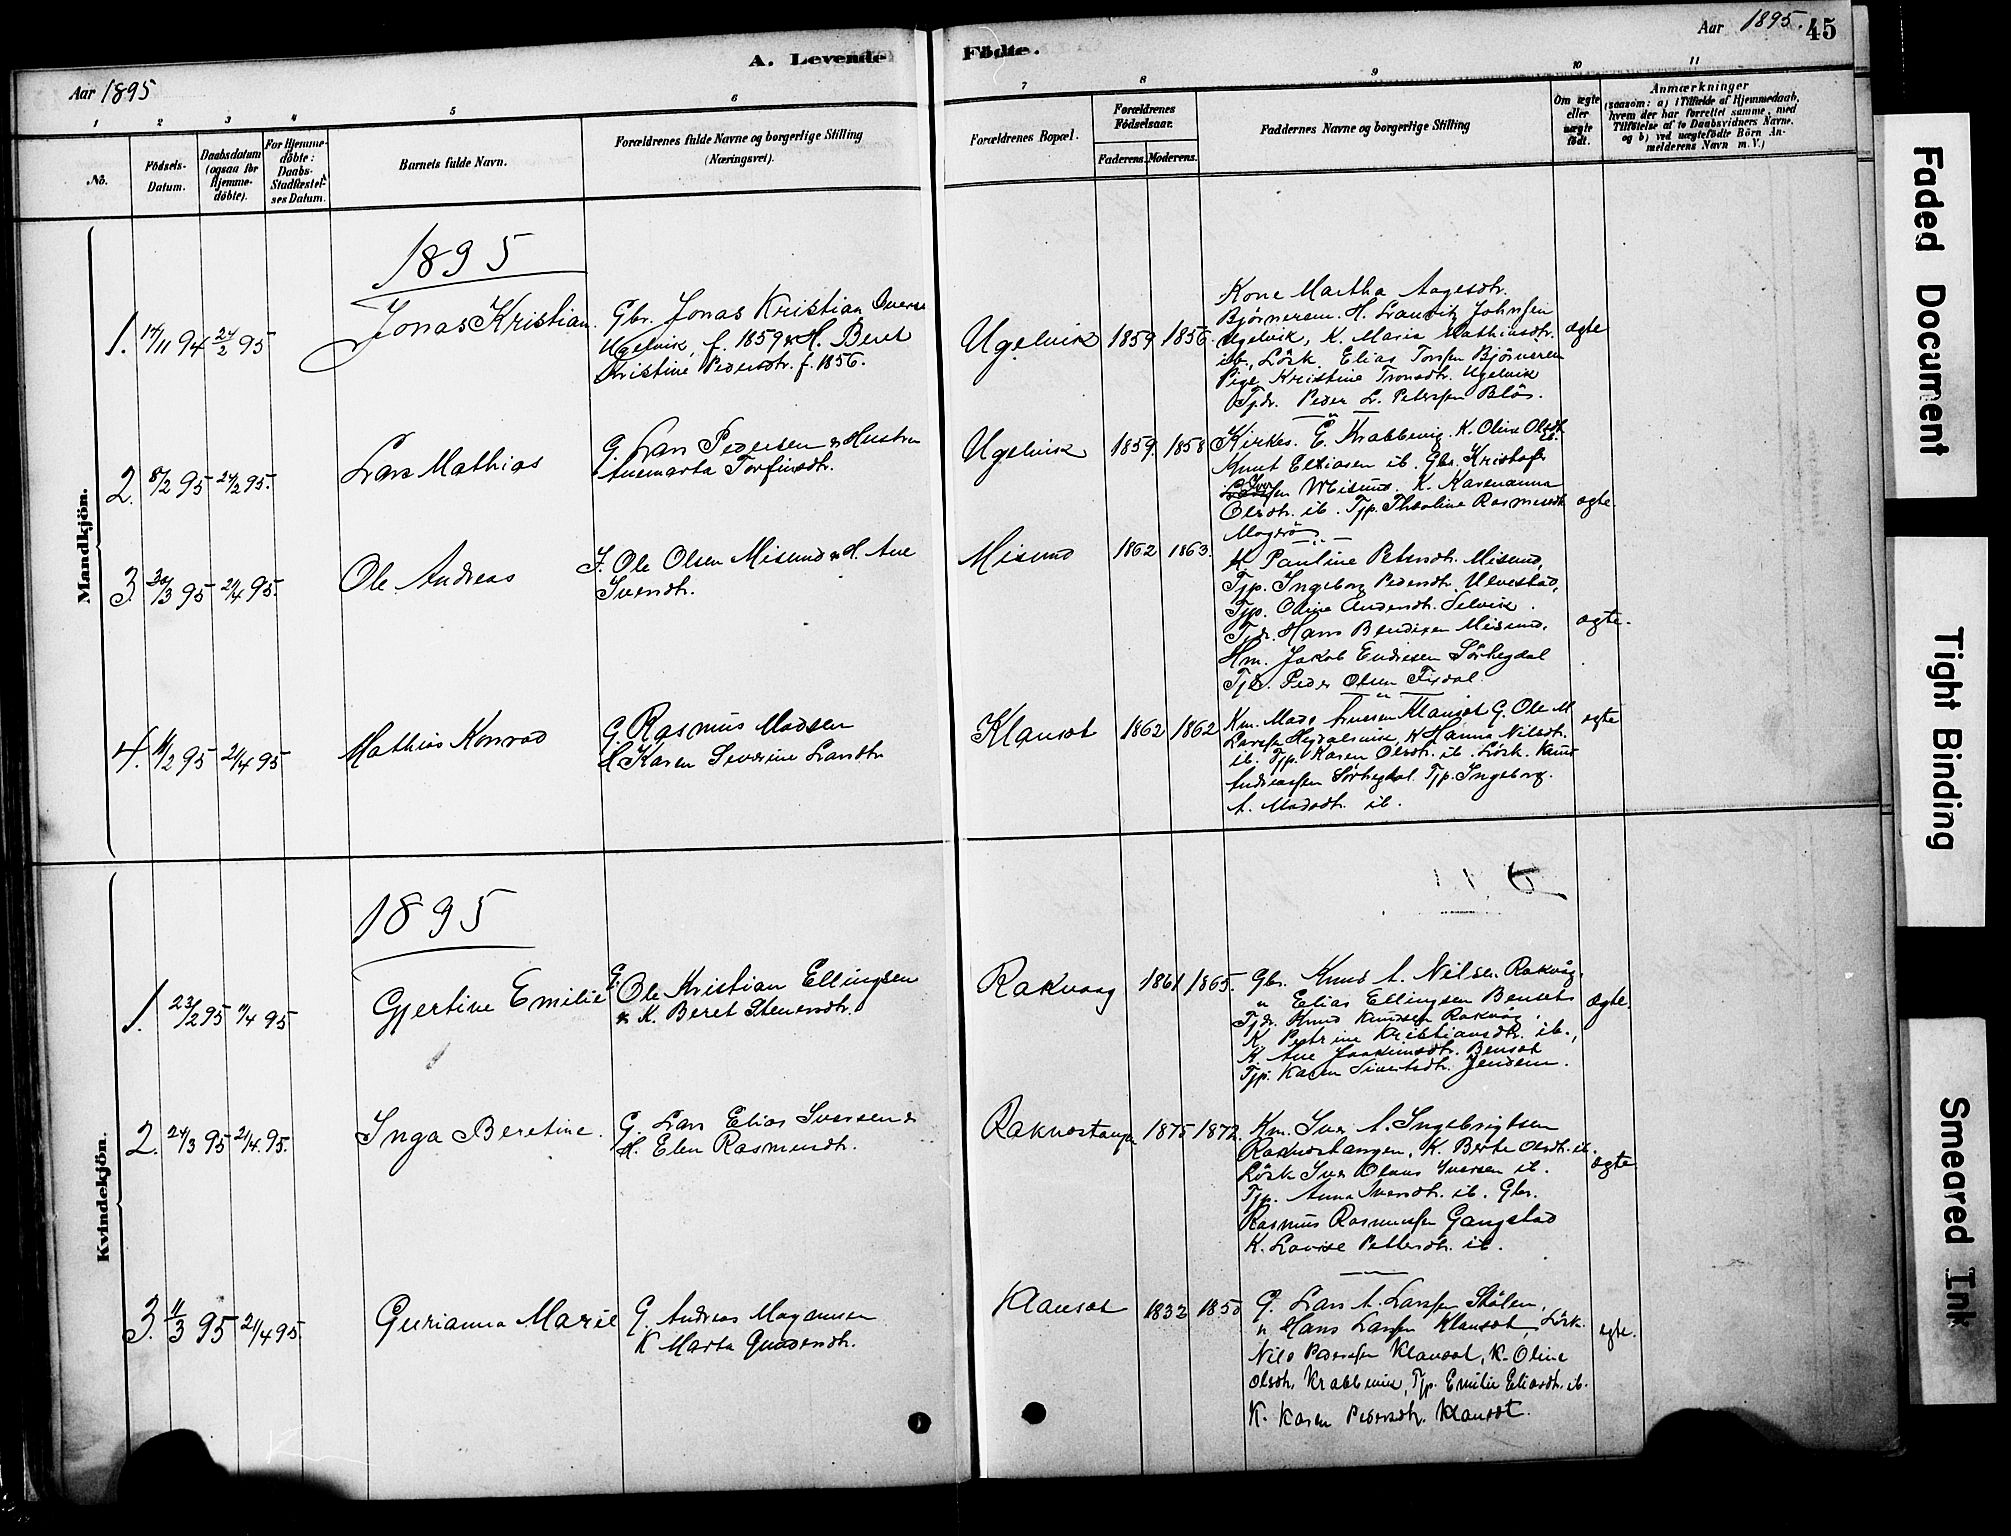 Aar 1895
A. Levende Fødte.
Aar 1895. 45
1 2 3 4 5 6 7 8 9 10 11
No.
Fødsels-Datum.
Daabsdatum (ogsaa for Hjemme-døbte).
For Hjemme-døbte: Daabs-Stadfæstel-ses Datum.
Barnets fulde Navn.
Forældrenes fulde Navne og borgerlige Stilling (Næringsvei).
Forældrenes Bopæl.
Forældrenes Fødselsaar.
Faderens. Moderens.
Faddernes Navne og borgerlige Stilling
Om ægte eller uægte født.
Anmærkninger
(saasom: a) i Tilfælde af Hjemmedaab, hvem der har forrettet samme, med Tilføielse af to Daabsvidners Navne, og b) ved uægtefødte Børn Anmelderens Navn m. V.)
Mandkjön.
1895
1. 14/11 94 24/2 95
Jonas Kristian.
Gbr. Jonas Kristian
Ugelvik, f. 1859 & H. Beret
Kristine Pedersdtr. f. 1856.
Ugelvik 1859 1856.
Kone Martha Aagesdtr.
Björnerem. H. Lauritz Johnsen
Ugelvik, K. Maria Mathiasdtr.
ib., Lösk. Elias Torsen Björnerem
Pige Kristine Tronsdtr. Ugelvik
Tjdr. Peder L. Petersen Blös.
ægte
2. 8/2 95 24/2 95.
Lars Mathias
G. Lars Pedersen & Hustru
Anemarta Torfinsdtr.
Ugelvik 1859. 1858
Kirkes. E. Krabbevig. K. Oline Olsdtr. ib.
Knut Eliasen ib. Gbr. Kristofer
Misund. K. Karenanna
Olsdtr. ib. Tjp. Thoaline Rasmusdtr
Magerö
ægte.
3. 30/3 95 21/4 95.
Ole Andreas
I. Ole Olsen Misund & H. Ane
Iversdtr.
Misund 1862 1863.
K. Pauline Petersdtr. Misund,
Tjp. Ingeborg Pedersdtr. Ulvestad,
Tjp. Oline Andersdtr. Selvik.
Tjdr. Hans Bendixen Misund.
Hm. Jakob Endresen Sörhegdal
Tjd. Peder Olsen Tixdal
ægte.
4. 11/2 95 21/4 95
Mathias Konrad
G. Rasmus Madsen
H. Karen Severine Larsdtr
Klauset 1862 1862
Km. Mads Iversen Klauset G. Ole M
Larsen Hegdalsvik, K Hanna Nilsdtr.
ib. Tjp. Karen Olsdtr. ib. Lösk. Knud
Andreassen Sörhegdal. Tjp. Ingeborg
A. Madsdtr. ib.
ægte
Kvindekjön.
1895
1. 23/2 95 11/4 95
Gjertine Emilie
G. Ole Kristian Ellingsen
& K. Beret Steversdtr.
Rakvaag 1861 1865.
Gbr. Knud A. Nilsen Rakvåg.
" Elias Ellingsen Benset
Tjdr. Knud Knudsen Rakvåg.
K Petrine Kristiansdtr. ib.,
K. Ane Joakimsdtr. Benset
Tjp. Karen Sivertsdtr. Jendem.
ægte.
2. 24/3 95 21/4. 95.
Inga Beretine.
G. Lars Elias Iversen &
H. Elen Rasmusdtr.
Raknestangen 1875 1872.
Km. Iver A. Ingebrigtsen
Raknestangen, K. Berte Olsdtr. ib.
Lösk Iver Olaus Iversen ib.
Tjp. Anna Iversdtr. ib. Gbr.
Rasmus Rasmussen Gangstad
K. Lovise Pettersdtr. ib.
ægte
3. 11/3 95 21/4 95.
Gurianna Marie
G. Andreas Magnusen
K Marta Gunersdtr.
Klauset 1832 1850
G. Lars A. Larsen Stölen,
" Hans Larsen Klauset, Lösk.
Nils Pedersen Klauset, K. Oline
Olsdtr. Krabbevik, Tjp. Emilie Eliasdtr. ib.
K. Karen Pedersdtr. Klauset.
ægte.
Faded Document
Tight Binding
Smeared Ink